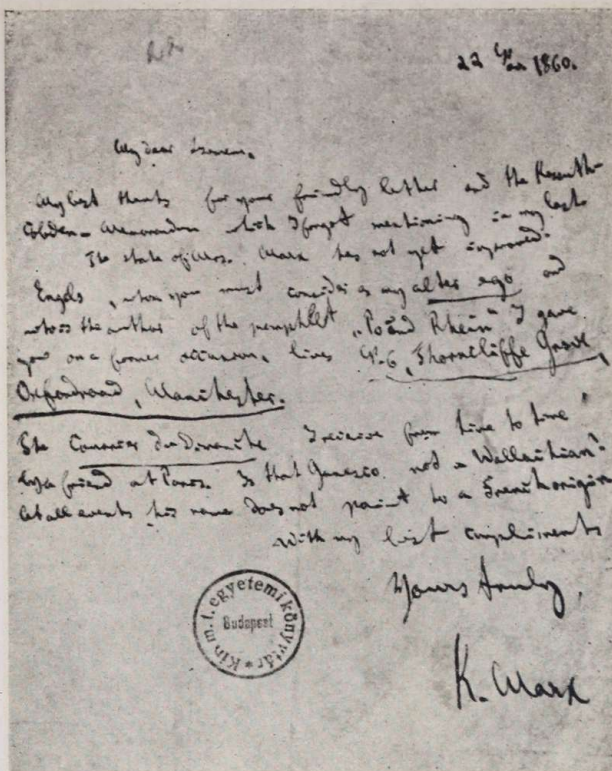 22 Nov 1860.
My dear Szemere.
My best thanks for your friendly letter and the Kossuth-
Cobden-Memorandum which I forgot mentioning in my last.
The state of Mrs. Marx has not yet improved.
Engels, whom you must consider as my alter ego and
who is the author of the pamphlet „Po und Rhein" I gave
you on a former occasion, lives 6, Thorncliffe Grove,
Oxfordroad, Manchester.
The Courrier du Dimanche I receive from time to time
by a friend at Paris. Is that Ganesco not a Wallachian?
At all events his name does not point to a French origin.
With my best compliments
Yours truly,
K. Marx
Kir. m. t. egyetemi könyvtár
Budapest